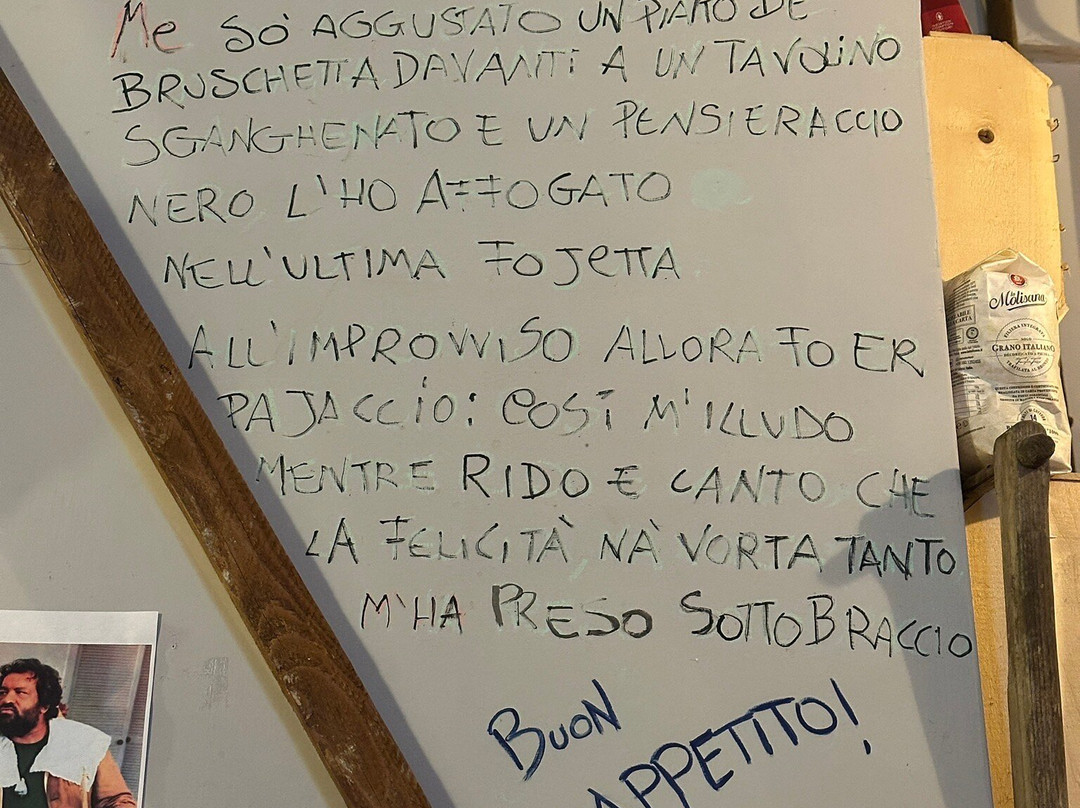 Me SÒ AGGUSTATO UN PIATTO DE
BRUSCHETTA DAVANTI A UN TAVOLINO
SGANGHENATO E UN PENSIERACCIO
NERO L'HO AFFOGATO
NELL'ULTIMA FOJETTA
ALL'IMPROVVISO ALLORA FO ER
PAJACCIO: COSÌ M'ILLUDO
MENTRE RIDO E CANTO CHE
LA FELICITÀ, NÀ VORTA TANTO
M'HA PRESO SOTTOBRACCIO
BUON
APPETITO!
la Molisana
FILIERA INTEGRATA
GRANO ITALIANO